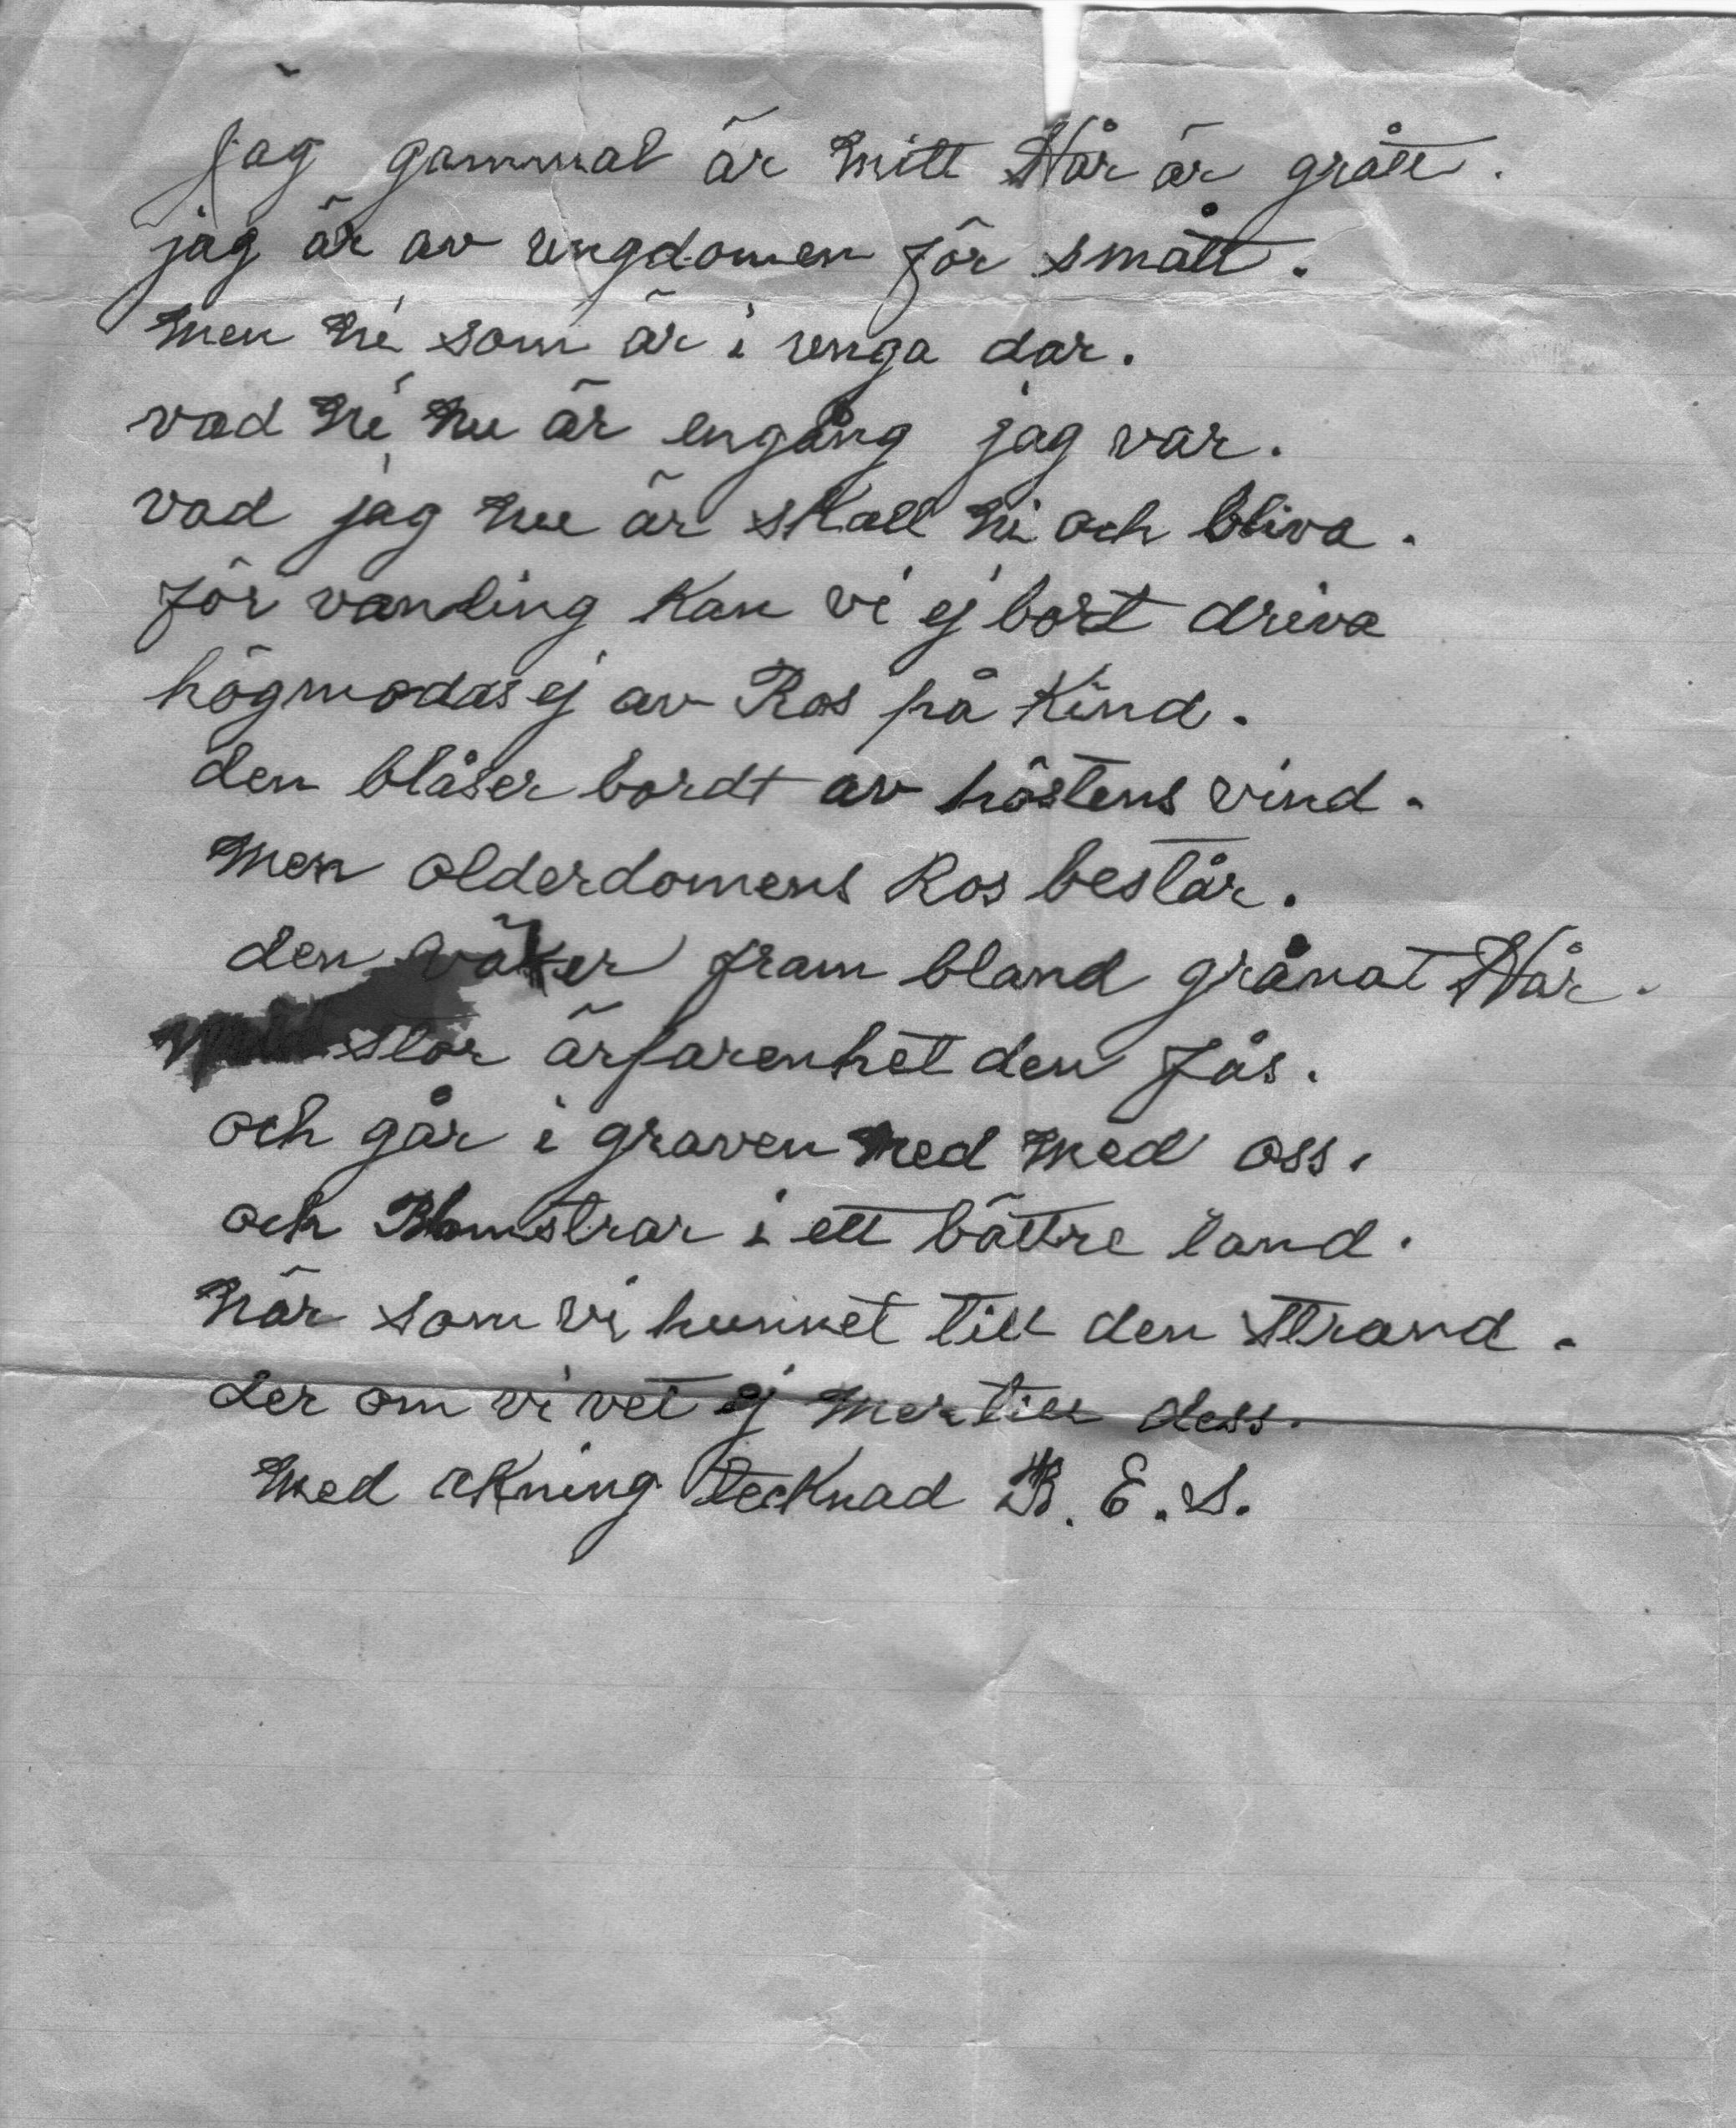 Jag gammal är mitt Hår är grått.
jag är av ungdomen för smått.
men ni som är i unga dar.
vad ni nu är engång jag var.
vad jag nu är skall ni och bliva.
för vanling kan vi ej bort driva
högmodas ej av Ros på Kind.
den blåser bordt av höstens vind.
men olderdomens Ros består.
den väker fram bland grånat Hår.
stor ärfarenhet den fås.
och går i graven med med oss.
och Blomstrar i ett bättre land.
när som vi hunnet till den strand.
der om vi vet ej mer till dess.
med akning tecknad B. E. S.